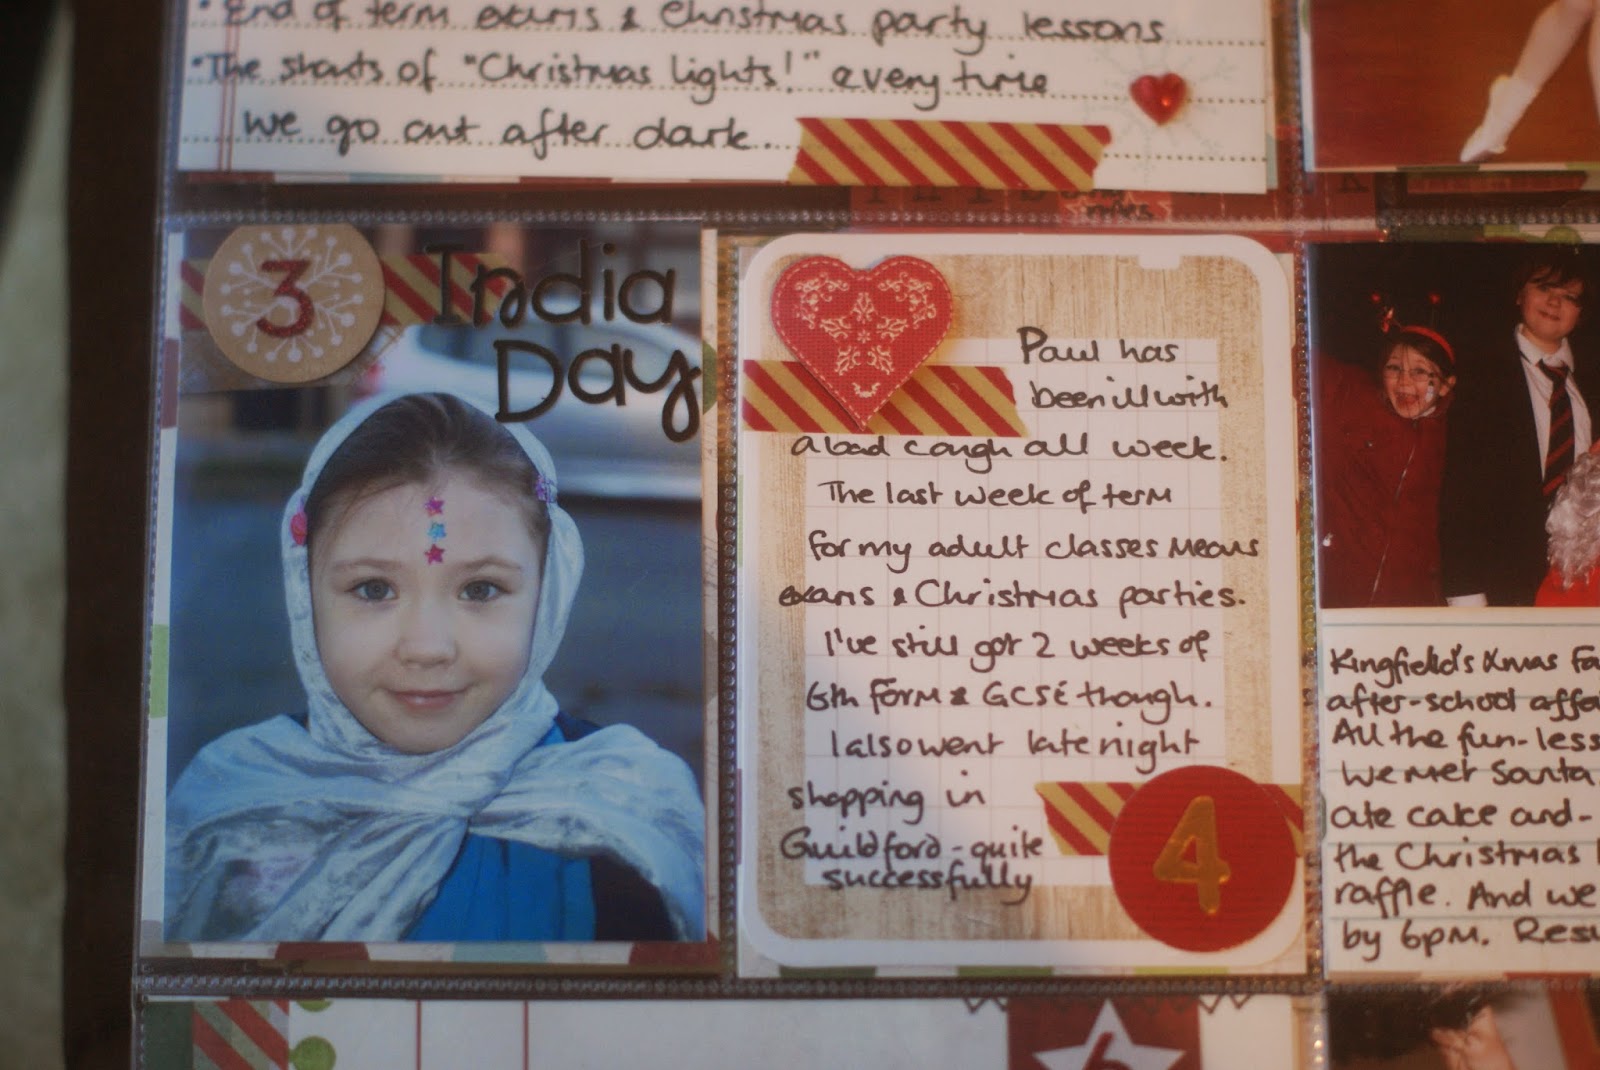 • End of term exams & Christmas party lessons
• The shouts of "Christmas lights!" every time
we go out after dark..
3
India
Day
Paul has
been ill with
a bad cough all week.
The last week of term
for my adult classes means
exams & Christmas parties.
I've still got 2 weeks of
6th Form & GCSE though.
I also went late night
shopping in
Guildford - quite
successfully
4
Kingfield's Xmas Fa
after-school affa
All the fun-less
We met Santa
ate cake and-
the Christmas
raffle. And we
by 6pm. Resu